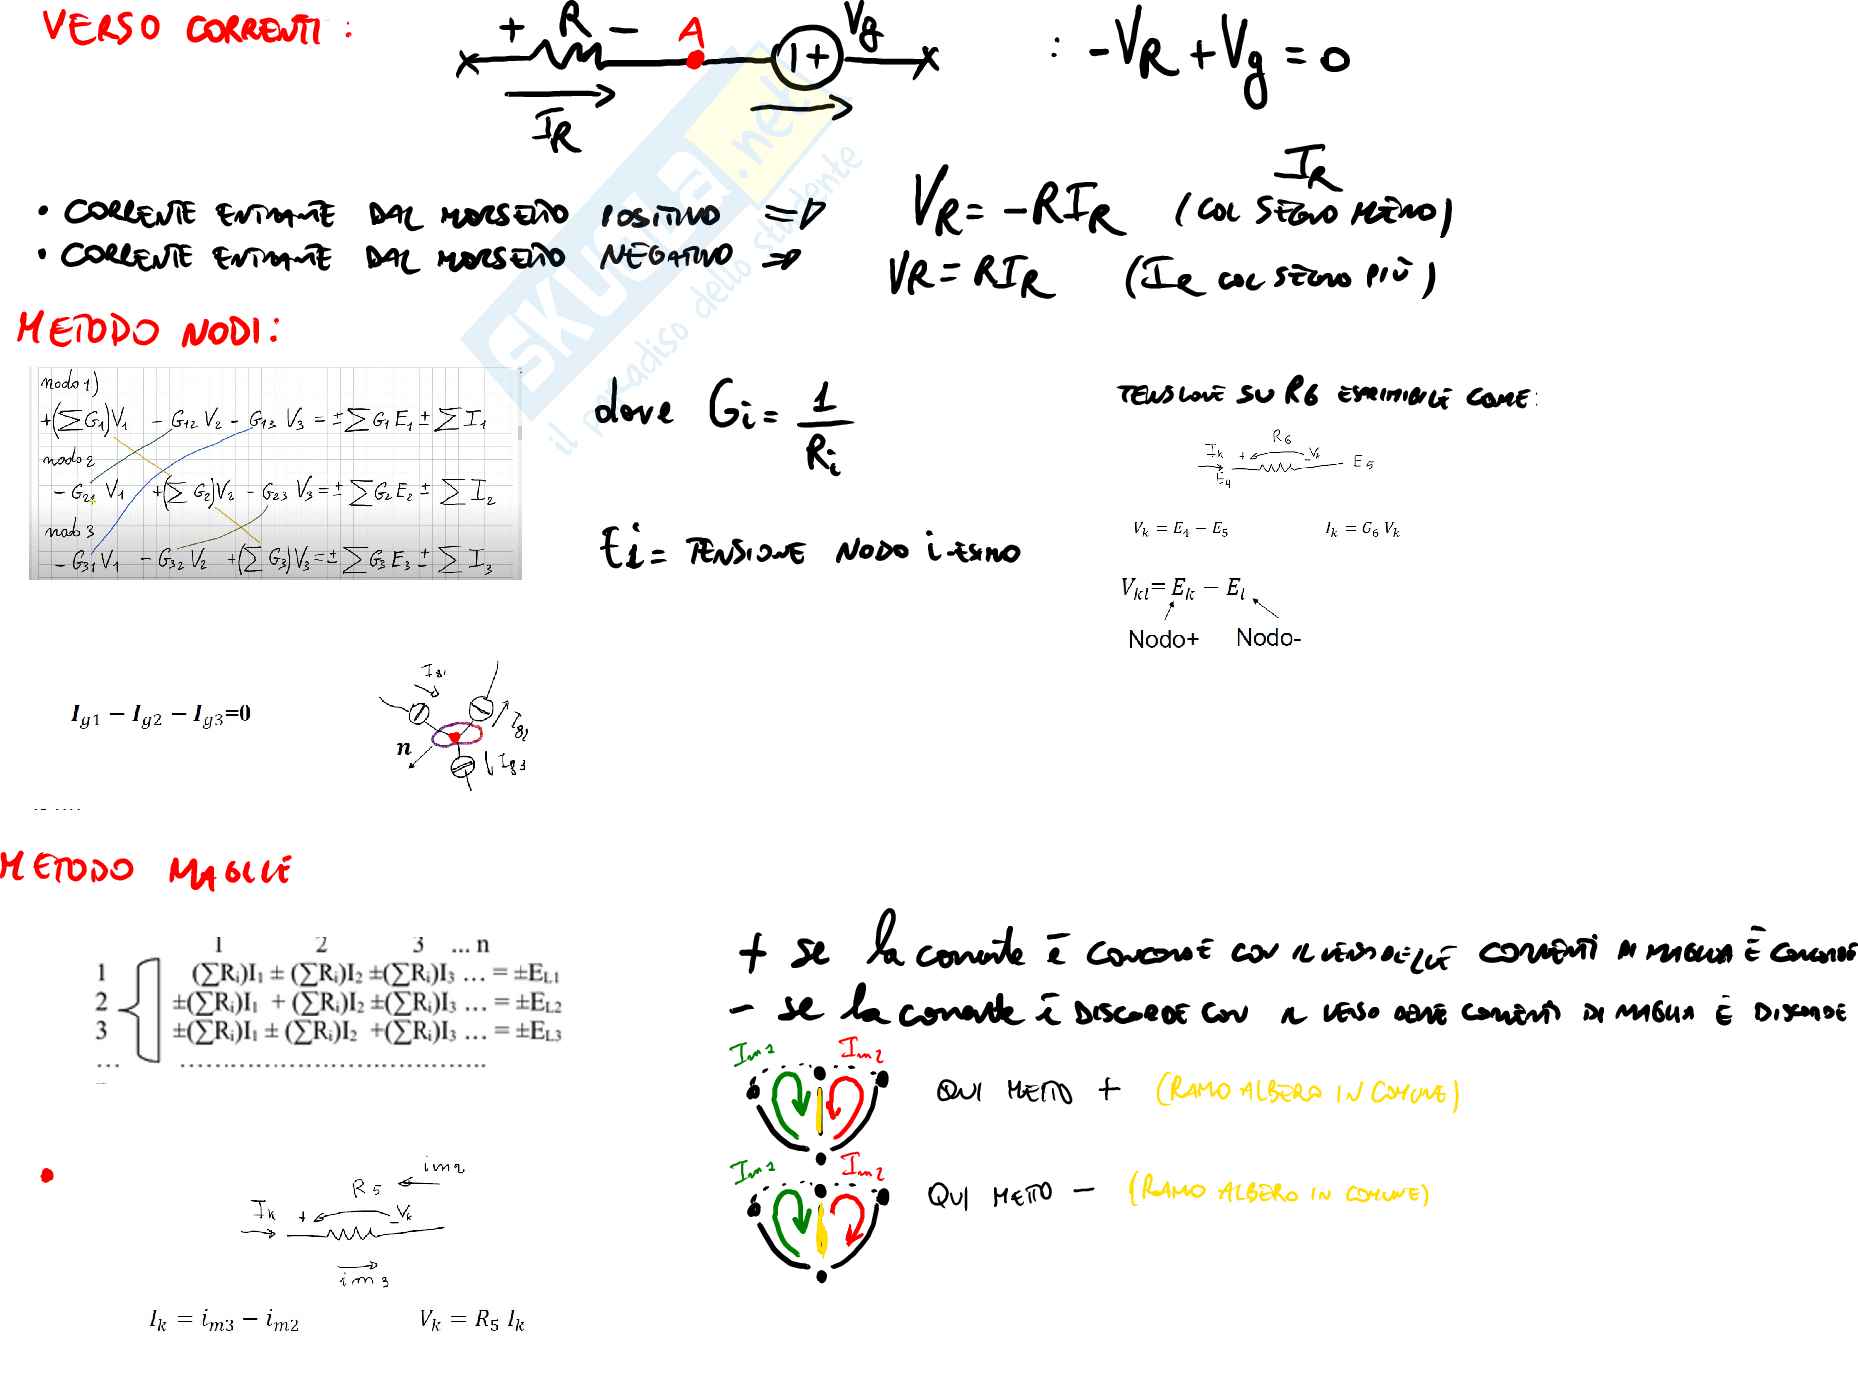 VERSO CORRENTI :
+ R - A Vg
I_R
: -V_R + V_g = 0
• CORRENTE ENTRANTE DAL MORSETTO POSITIVO => V_R = -R I_R (I_R COL SEGNO MENO)
• CORRENTE ENTRANTE DAL MORSETTO NEGATIVO => V_R = R I_R (I_R COL SEGNO PIÙ)
SKUOLA.net
il paradiso dello studente
METODO NODI :
nodo 1)
+(∑G₁)V₁ - G₁₂ V₂ - G₁₃ V₃ = ± ∑ G₁ E₁ ± ∑ I₁
nodo 2
- G₂₁ V₁ +(∑ G₂)V₂ - G₂₃ V₃ = ± ∑ G₂ E₂ ± ∑ I₂
nodo 3
- G₃₁ V₁ - G₃₂ V₂ +(∑ G₃)V₃ = ± ∑ G₃ E₃ ± ∑ I₃
dove Gi = 1/Ri
Ei = TENSIONE NODO i-ESIMO
TENSIONE SU R6 ESPRIMIBILE COME:
R₆
I_k + -V_k E₅
E₄
V_k = E₄ − E₅ I_k = G₆ V_k
V_kl = E_k − E_l
Nodo+ Nodo-
I_g1 − I_g2 − I_g3=0
I_g1
I_g2
n I_g3
METODO MAGLIE
1 2 3 ... n
1 (∑Ri)I₁ ± (∑Ri)I₂ ±(∑Ri)I₃ ... = ±E_L1
2 ±(∑Ri)I₁ + (∑Ri)I₂ ±(∑Ri)I₃ ... = ±E_L2
3 ±(∑Ri)I₁ ± (∑Ri)I₂ +(∑Ri)I₃ ... = ±E_L3
... ..........................................
+ se la corrente è CONCORDE CON IL VERSO DELLE CORRENTI DI MAGLIA È CONCORDE
- se la corrente è DISCORDE CON IL VERSO DELLE CORRENTI DI MAGLIA È DISCORDE
I_m1 I_m2
QUI METTO + (RAMO ALBERO IN COMUNE)
I_m1 I_m2
QUI METTO - (RAMO ALBERO IN COMUNE)
im2
R5
I_k + -V_k
im3
I_k = i_m3 − i_m2 V_k = R₅ I_k